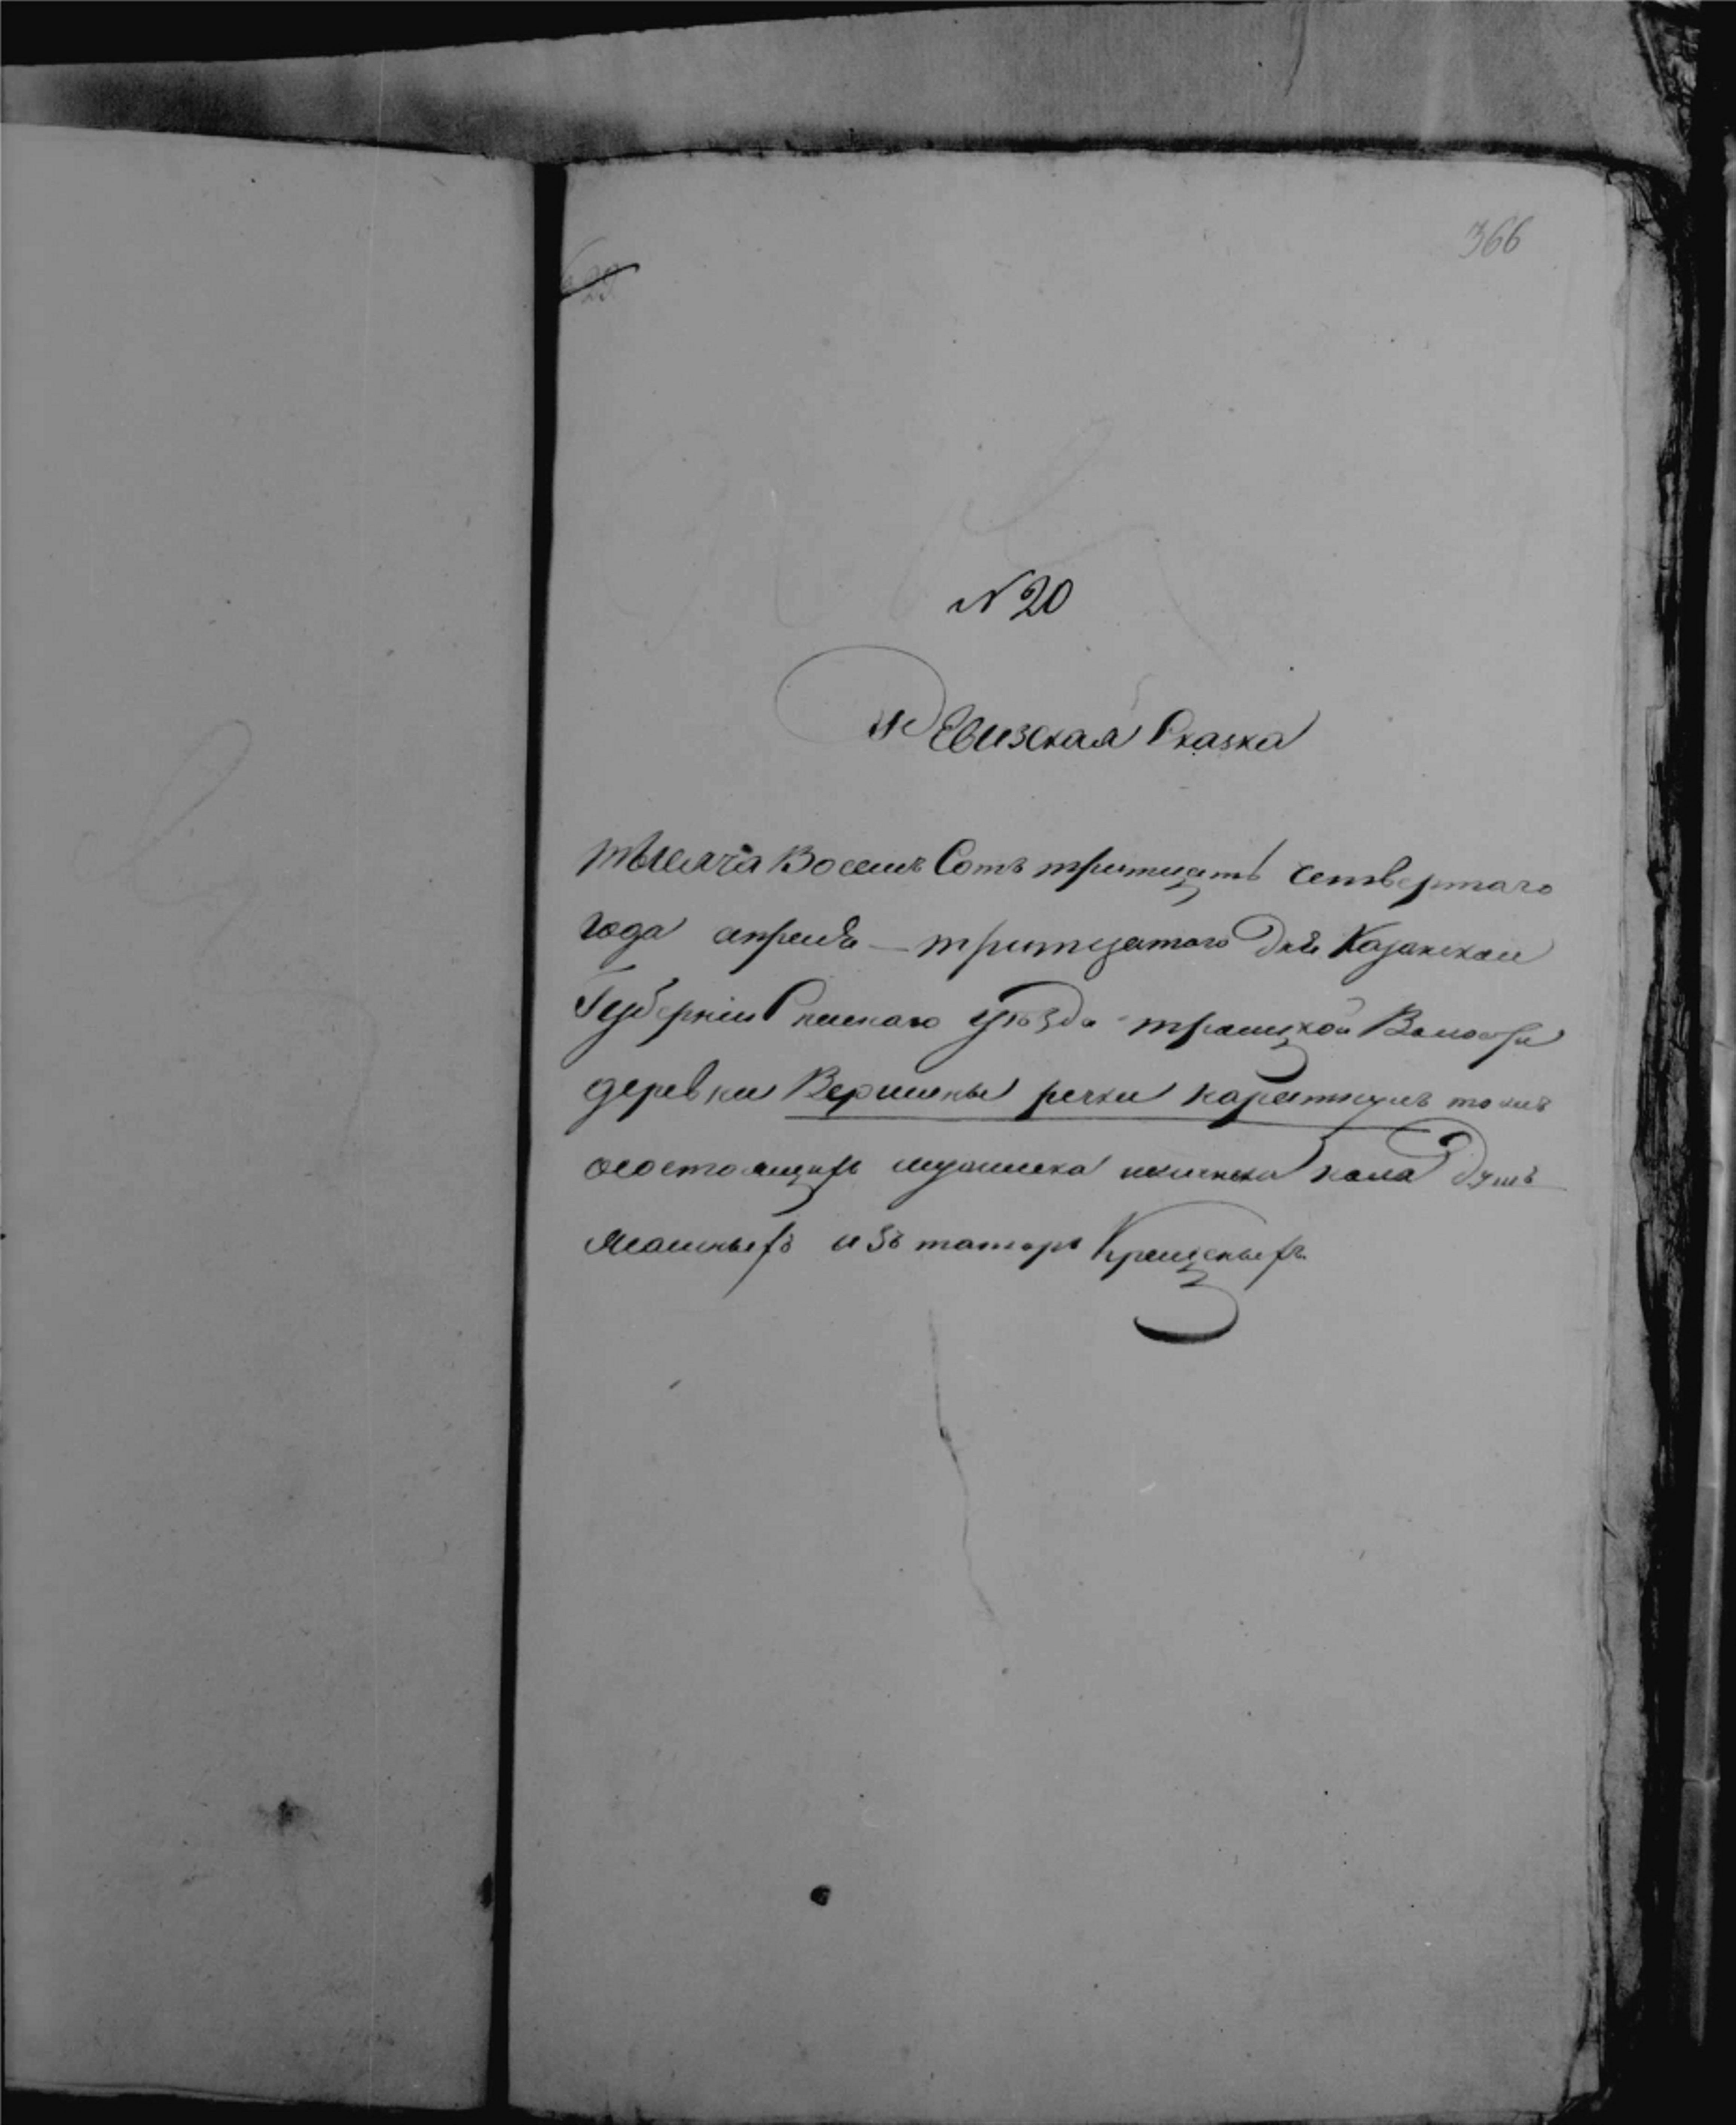 366
N 20
Ревизская Сказка
тысяча Восемь Сотъ тритцать четвертаго
года апреля — тритцатого дня Казанской
Губерніи Спаскаго уѣзда траицкой Валости
деревни Вершины речки тамъ
состоящихъ мужеска женска пола душъ
изъ татаръ Крещеныхъ